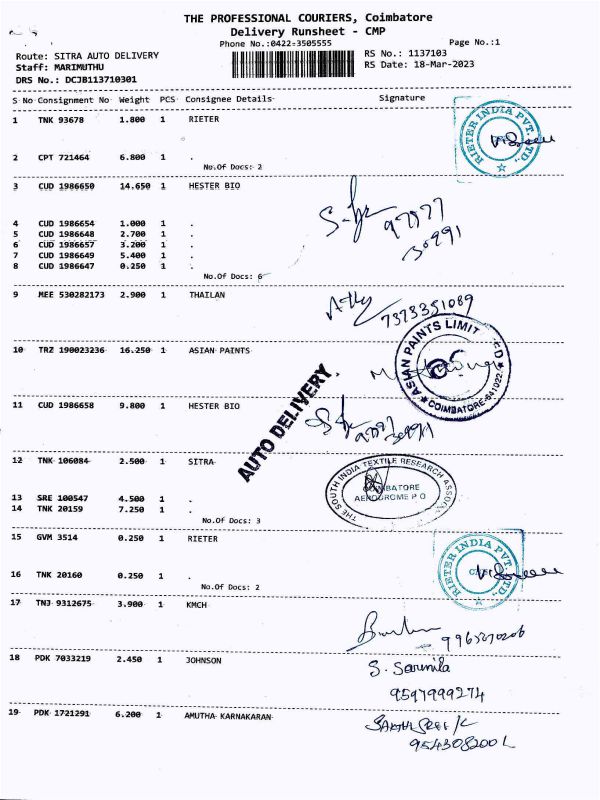 THE PROFESSIONAL COURIERS, Coimbatore
Delivery Runsheet - CMP
Phone No.:0422-3505555 Page No.:1
Route: SITRA AUTO DELIVERY RS No.: 1137103
Staff: MARIMUTHU RS Date: 18-Mar-2023
DRS No.: DCJB113710301
S No Consignment No Weight PCS Consignee Details Signature
1 TNK 93678 1.800 1 RIETER
RIETER INDIA PVT. LTD.,
2 CPT 721464 6.800 1 .
No.Of Docs: 2
3 CUD 1986650 14.650 1 HESTER BIO
4 CUD 1986654 1.000 1 .
5 CUD 1986648 2.700 1 .
6 CUD 1986657 3.200 1 .
7 CUD 1986649 5.400 1 .
8 CUD 1986647 0.250 1 .
No.Of Docs: 6
97877
30991
9 MEE 530282173 2.900 1 THAILAN
7373351089
10 TRZ 190023236 16.250 1 ASIAN PAINTS
ASIAN PAINTS LIMITED
COIMBATORE-641022.
AUTO DELIVERY.
11 CUD 1986658 9.800 1 HESTER BIO
12 TNK 106084 2.500 1 SITRA
THE SOUTH INDIA TEXTILE RESEARCH ASSOC.
COIMBATORE
AERODROME P O
13 SRE 100547 4.500 1 .
14 TNK 20159 7.250 1 .
No.Of Docs: 3
15 GVM 3514 0.250 1 RIETER
RIETER INDIA PVT. LTD.,
16 TNK 20160 0.250 1 .
No.Of Docs: 2
17 TNJ 9312675 3.900 1 KMCH
9965270206
18 PDK 7033219 2.450 1 JOHNSON
S. Sarmila
9597999274
19 PDK 1721291 6.200 1 AMUTHA KARNAKARAN